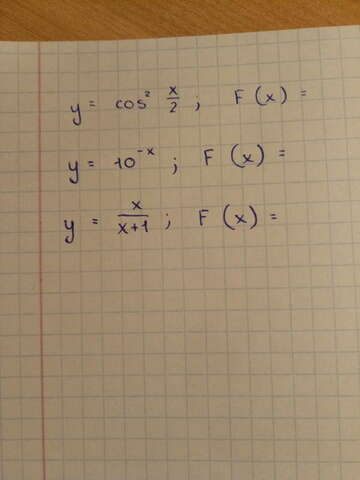 y = cos² x/2 ; F(x) =
y = 10⁻ˣ ; F(x) =
y = x/x+1 ; F(x) =